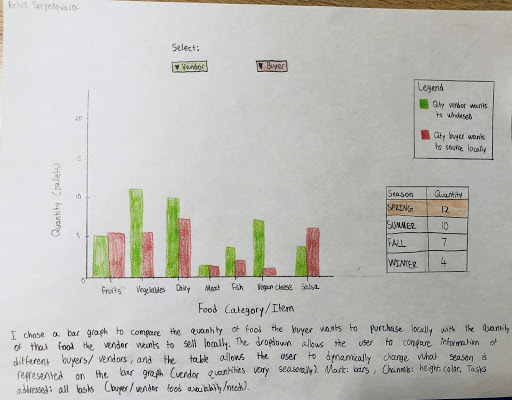 Select:
▼ Vendor
▼ Buyer
Legend
Qty vendor wants
to wholesell
Qty buyer wants
to source locally
Quantity (pallets)
20
15
10
5
Season Quantity
SPRING 12
SUMMER 10
FALL 7
WINTER 4
Fruits Vegetables Dairy Meat Fish Vegan cheese Salsa
Food Category/Item
I chose a bar graph to compare the quantity of food the buyer wants to purchase locally with the quantity
of that food the vendor wants to sell locally. The dropdown allows the user to compare information of
different buyers/vendors, and the table allows the user to dynamically change what season is
represented on the bar graph (vendor quantities vary seasonally). Mark: bars, Channels: height, color. Tasks
addressed: all tasks (buyer/vendor food availability/needs).